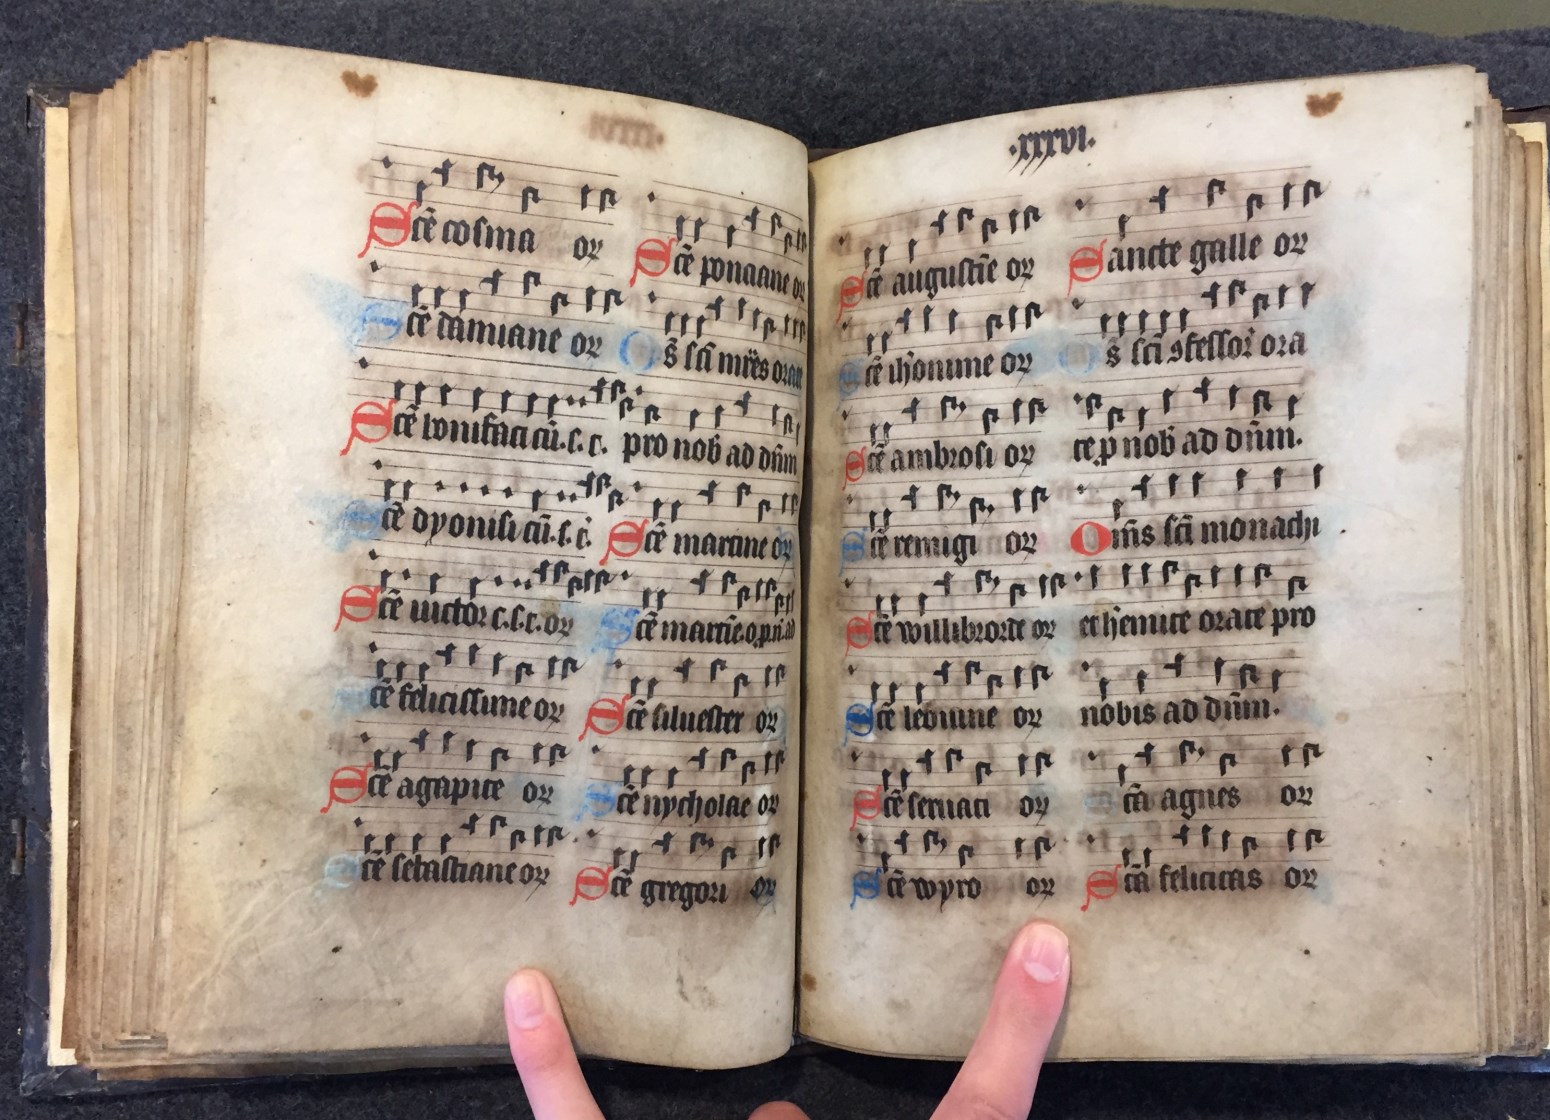 Sce cosma or
Sce damiane or
Sce bonifaci cū. s. c.
Sce dyonisi cū. s. c.
Sce victor c. s. c. or
Sce felicissime or
Sce agapite or
Sce sebastiane or
Sce ponciane or
Os sci mrēs orate
pro nob ad dnm
Sce martine or
Sce marcie. o. p. n. ad
Sce siluester or
Sce nycholae or
Sce gregori or
.xxxvi.
Sce augustie or
Sce ihonime or
Sce ambrosi or
Sce remigi or
Sce willibrorde or
Sce leonine or
Sce seruati or
Sce wyro or
Sancte galle or
Os sci ꝯfessor ora
te p nob ad dnm.
Oms sci monachi
et hemite orate pro
nobis ad dnm.
Sca agnes or
Sca felicitas or